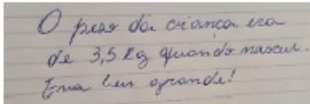 O peso da criança era
de 3,5 kg quando nasceu.
Era bem grande!